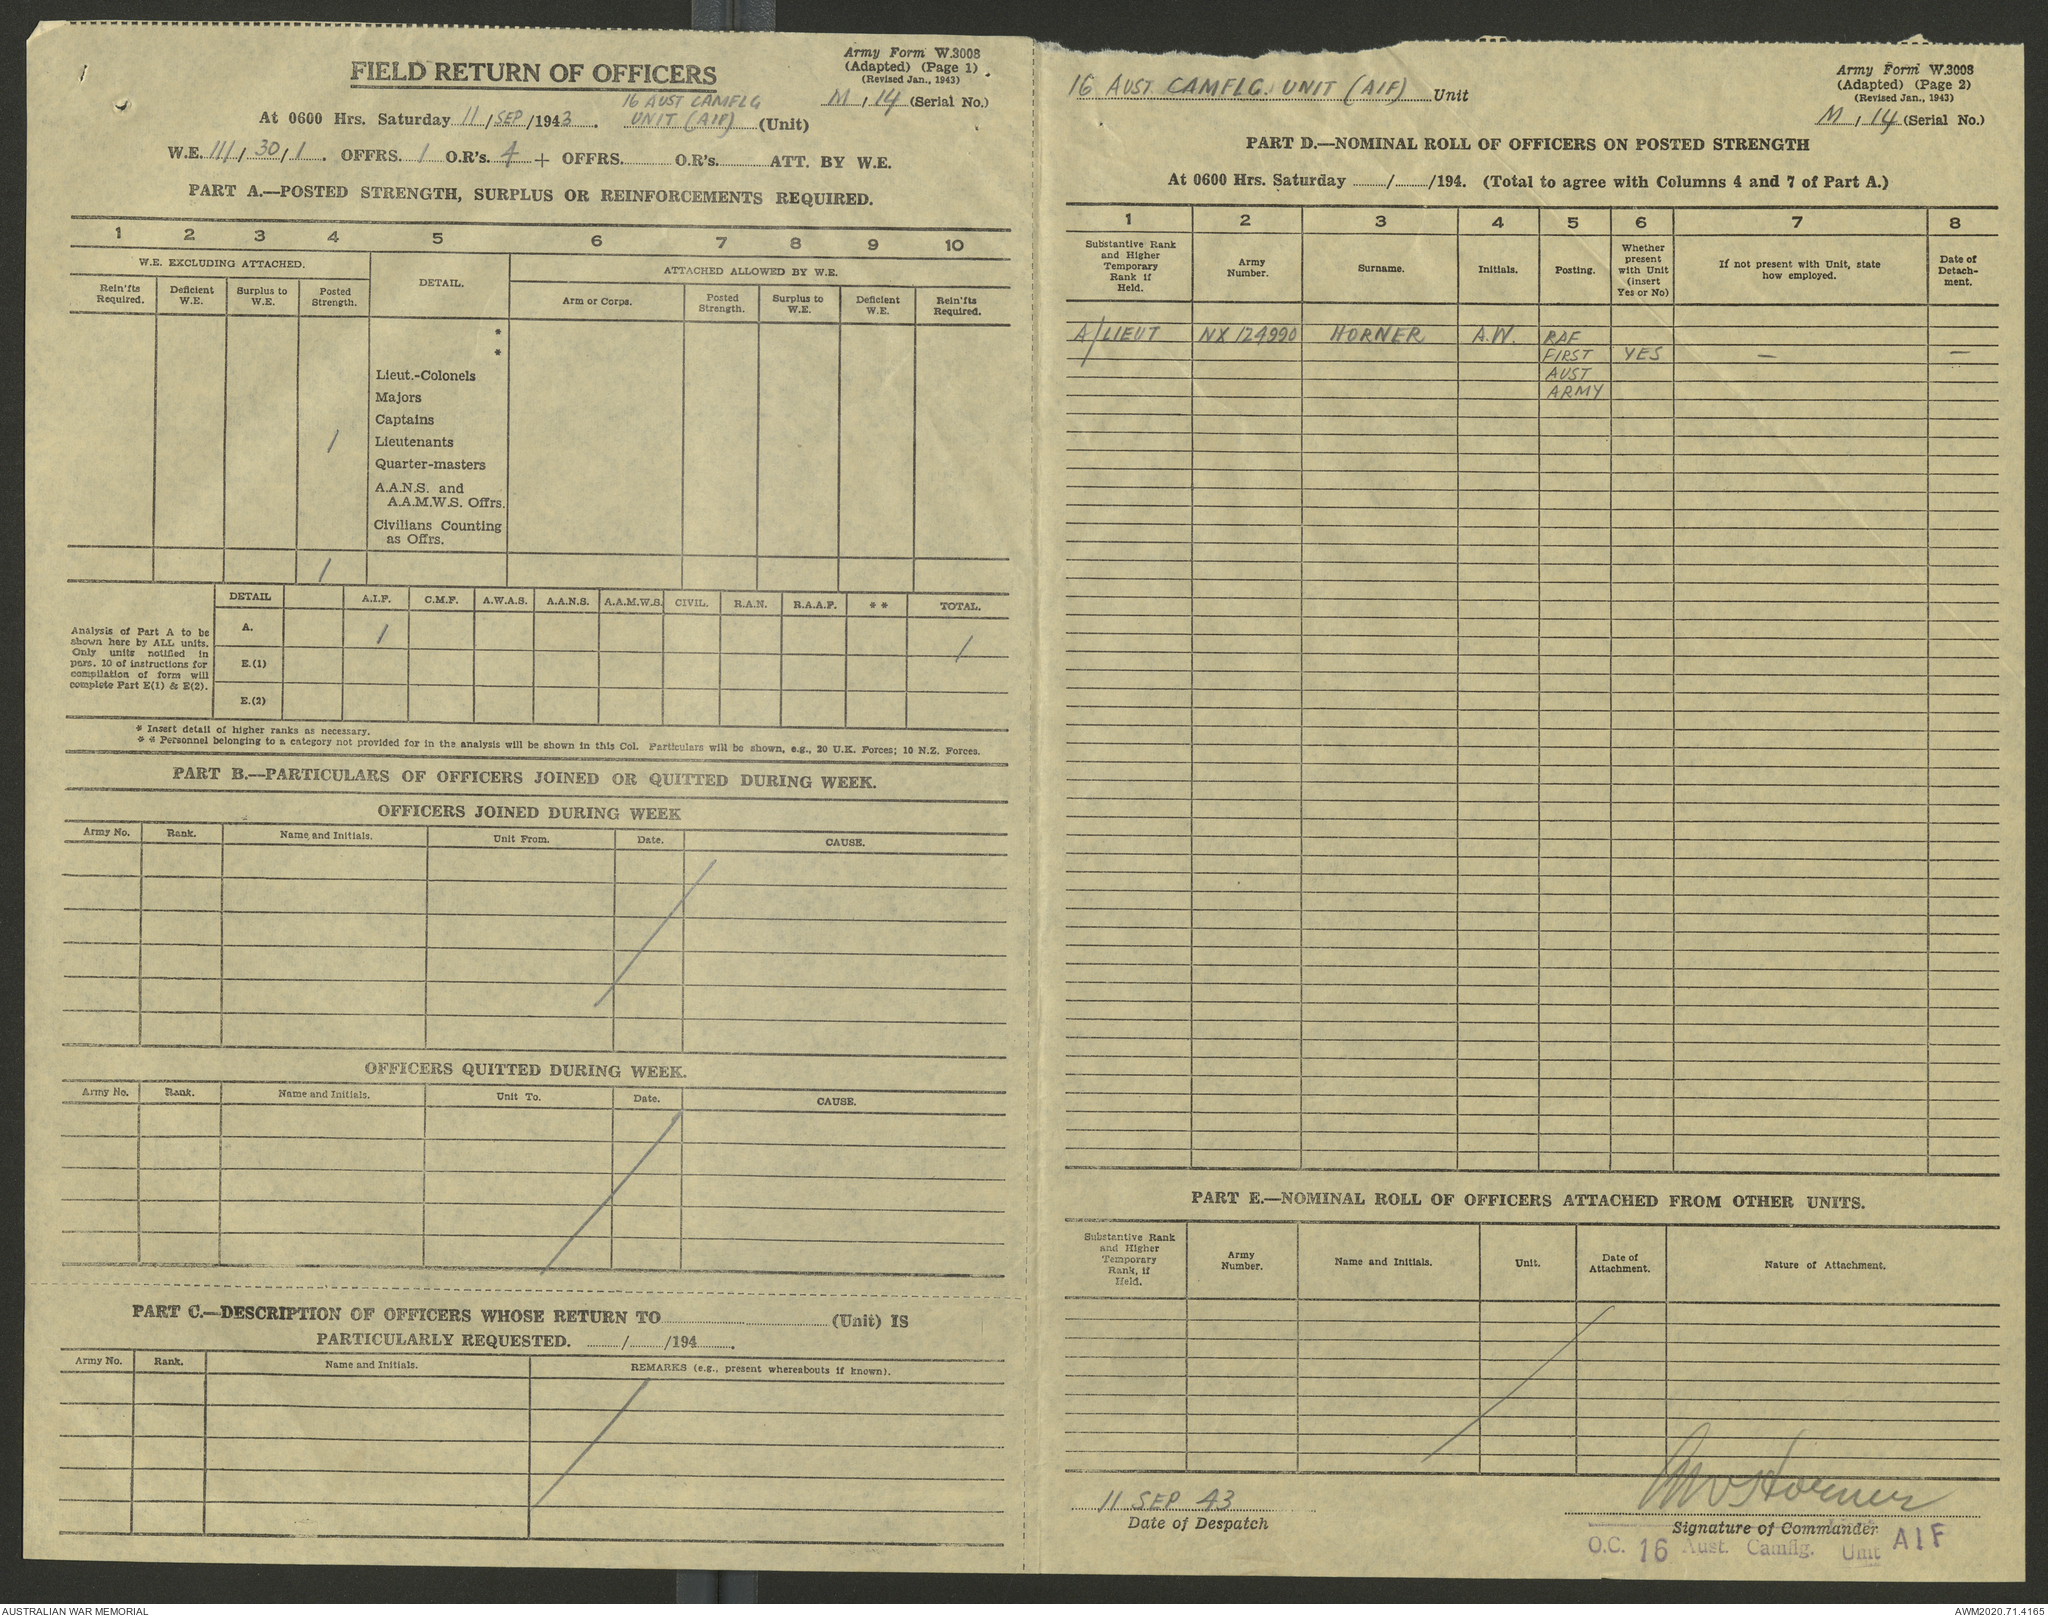 FIELD RETURN OF OFFICERS
Army Form W.3008
(Adapted) (Page 1)
(Revised Jan., 1943)
M, 14 (Serial No.)
At 0600 Hrs. Saturday 11/SEP/1943. 16 AUST CAMFLG
UNIT (AIF) (Unit)
W.E. 111, 30, 1. OFFRS. 1 O.R's. 4 + OFFRS. O.R's. ATT. BY W.E.
PART A.—POSTED STRENGTH, SURPLUS OR REINFORCEMENTS REQUIRED.
1 2 3 4 5 6 7 8 9 10
W.E. EXCLUDING ATTACHED.
DETAIL.
ATTACHED ALLOWED BY W.E.
Rein'fts Required.
Deficient W.E.
Surplus to W.E.
Posted Strength.
Arm or Corps.
Posted Strength.
Surplus to W.E.
Deficient W.E.
Rein'fts Required.
*
*
Lieut.-Colonels
Majors
Captains
1 Lieutenants
Quarter-masters
A.A.N.S. and
A.A.M.W.S. Offrs.
Civilians Counting
as Offrs.
1
DETAIL A.I.F. C.M.F. A.W.A.S. A.A.N.S. A.A.M.W.S. CIVIL. R.A.N. R.A.A.F. * * TOTAL.
Analysis of Part A to be
shown here by ALL units.
Only units notified in
para. 10 of instructions for
compilation of form will
complete Part E(1) & E(2).
A. 1 1
E.(1)
E.(2)
* Insert detail of higher ranks as necessary.
* * Personnel belonging to a category not provided for in the analysis will be shown in this Col. Particulars will be shown, e.g., 20 U.K. Forces; 10 N.Z. Forces.
PART B.—PARTICULARS OF OFFICERS JOINED OR QUITTED DURING WEEK.
OFFICERS JOINED DURING WEEK
Army No. Rank. Name and Initials. Unit From. Date. CAUSE.
OFFICERS QUITTED DURING WEEK.
Army No. Rank. Name and Initials. Unit To. Date. CAUSE.
PART C.—DESCRIPTION OF OFFICERS WHOSE RETURN TO (Unit) IS
PARTICULARLY REQUESTED. / /194 .
Army No. Rank. Name and Initials. REMARKS (e.g., present whereabouts if known).
16 AUST. CAMFLG. UNIT (AIF) Unit
Army Form W.3008
(Adapted) (Page 2)
(Revised Jan., 1943)
M, 14 (Serial No.)
PART D.—NOMINAL ROLL OF OFFICERS ON POSTED STRENGTH
At 0600 Hrs. Saturday / /194. (Total to agree with Columns 4 and 7 of Part A.)
1 2 3 4 5 6 7 8
Substantive Rank
and Higher
Temporary
Rank if
Held.
Army
Number.
Surname.
Initials.
Posting.
Whether
present
with Unit
(insert
Yes or No)
If not present with Unit, state
how employed.
Date of
Detach-
ment.
A/LIEUT NX 124990 HORNER A.W. RAF
FIRST YES — —
AUST
ARMY
PART E.—NOMINAL ROLL OF OFFICERS ATTACHED FROM OTHER UNITS.
Substantive Rank
and Higher
Temporary
Rank, if
Held.
Army
Number.
Name and Initials.
Unit.
Date of
Attachment.
Nature of Attachment.
11 SEP 43
Date of Despatch
AW Horner
Signature of Commander
O.C. 16 Aust. Camflg. Unit AIF
AUSTRALIAN WAR MEMORIAL
AWM2020.71.4165